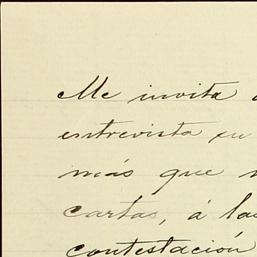 Me invita
entrevista en
más que
cartas, á la
contestación